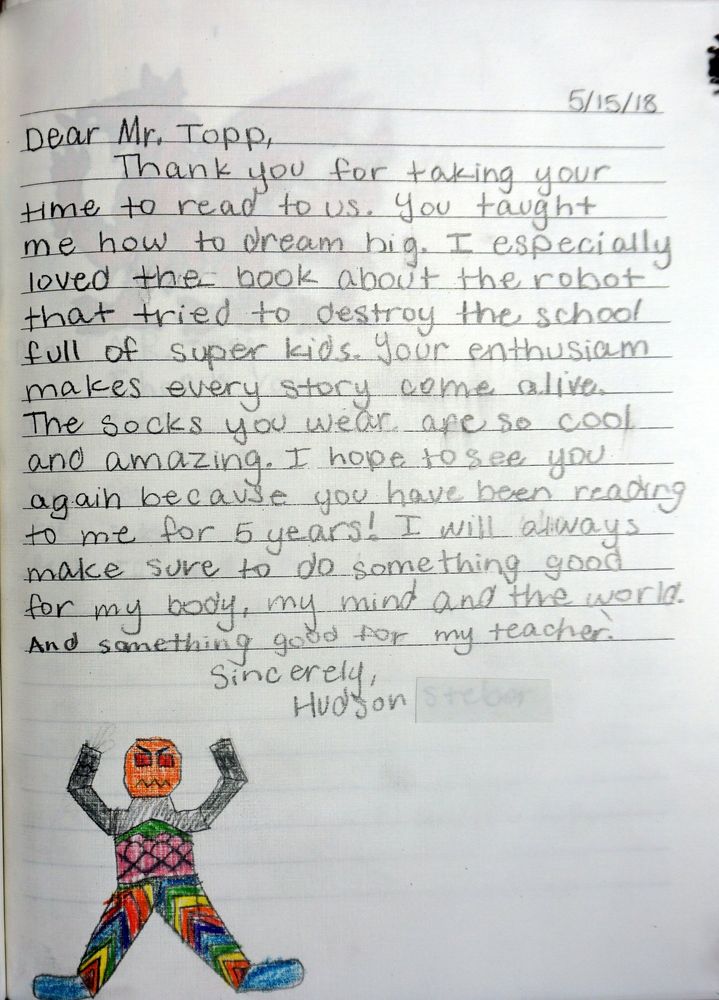 5/15/18
Dear Mr. Topp,
Thank you for taking your
time to read to us. You taught
me how to dream big. I especially
loved the book about the robot
that tried to destroy the school
full of super kids. Your enthusiam
makes every story come alive.
The socks you wear are so cool
and amazing. I hope to see you
again because you have been reading
to me for 5 years! I will always
make sure to do something good
for my body, my mind and the world.
And something good for my teacher.
Sincerely,
Hudson